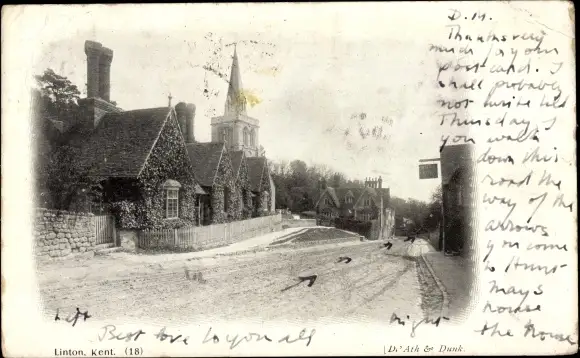 D. M.
Thanks very
much for your
post card. I
shall probably
not arrive till
Thursday. If
you walk
down this
road the
way of the
arrows
you come
to
mays
house
the house
Left
right
Best love to you all
Linton, Kent. (18)
De'Ath & Dunk.